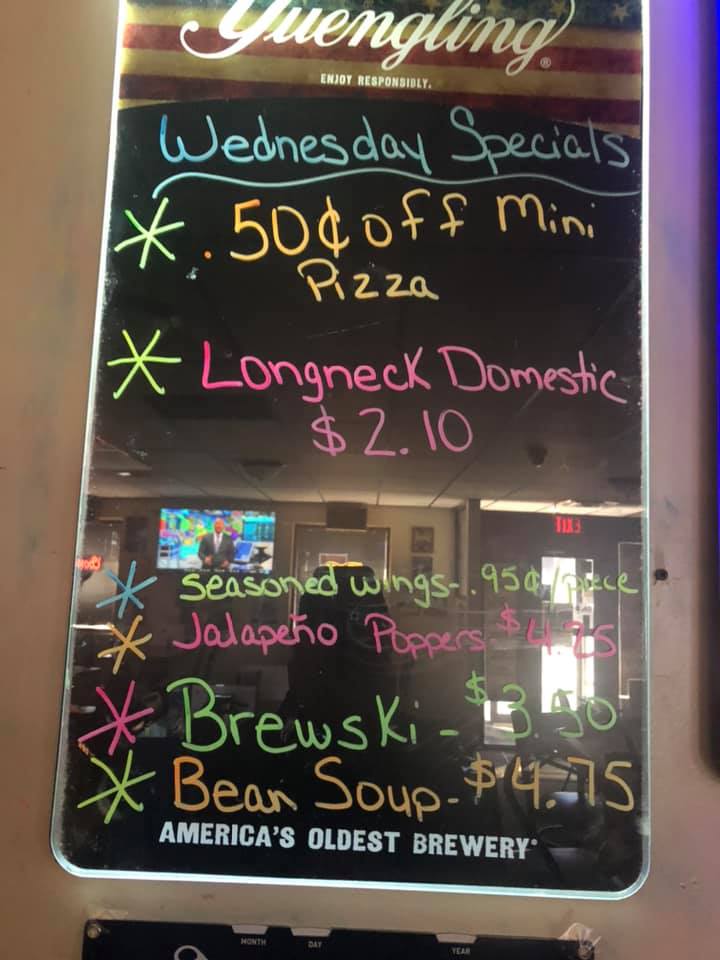 Yuengling®
ENJOY RESPONSIBLY.
Wednesday Specials
* .50¢ off Mini
Pizza
* Longneck Domestic
$2.10
* seasoned wings-.95¢/piece
* Jalapeño Poppers $4.25
* Brewski - $3.50
* Bean Soup-$4.75
AMERICA'S OLDEST BREWERY®
MONTH DAY YEAR